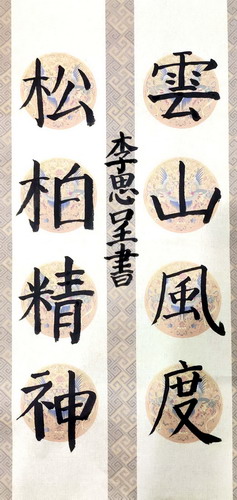 雲山風度
松柏精神
李思呈書